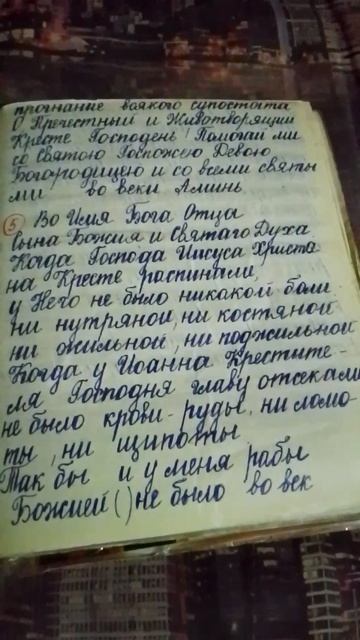 прогнание всякого супостата
О Пречестный и Животворящий
Кресте Господень! Помогай ми
со Святою Госпожею Девою
Богородицею и со всеми святы
ми во веки Аминь
5 Во Имя Бога Отца
Сына Божия и Святаго Духа
Когда Господа Иисуса Христа
на Кресте распинали,
у Него не было никакой боли
ни нутряной, ни костяной
ни жильной, ни поджильной
Когда у Иоанна Крестите-
ля Господня главу отсекали
не было крови-руды, ни ломо-
ты, ни щипоты
Так бы и у меня рабы
Божией ( ) не было во век